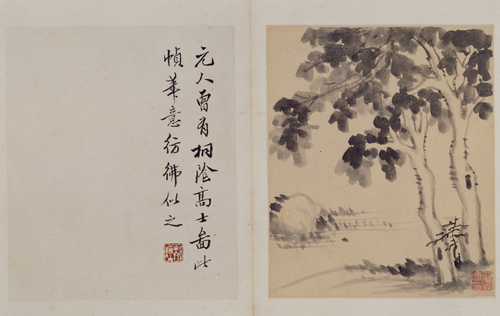 元人曾有桐陰高士啚此
幀華意彷彿似之